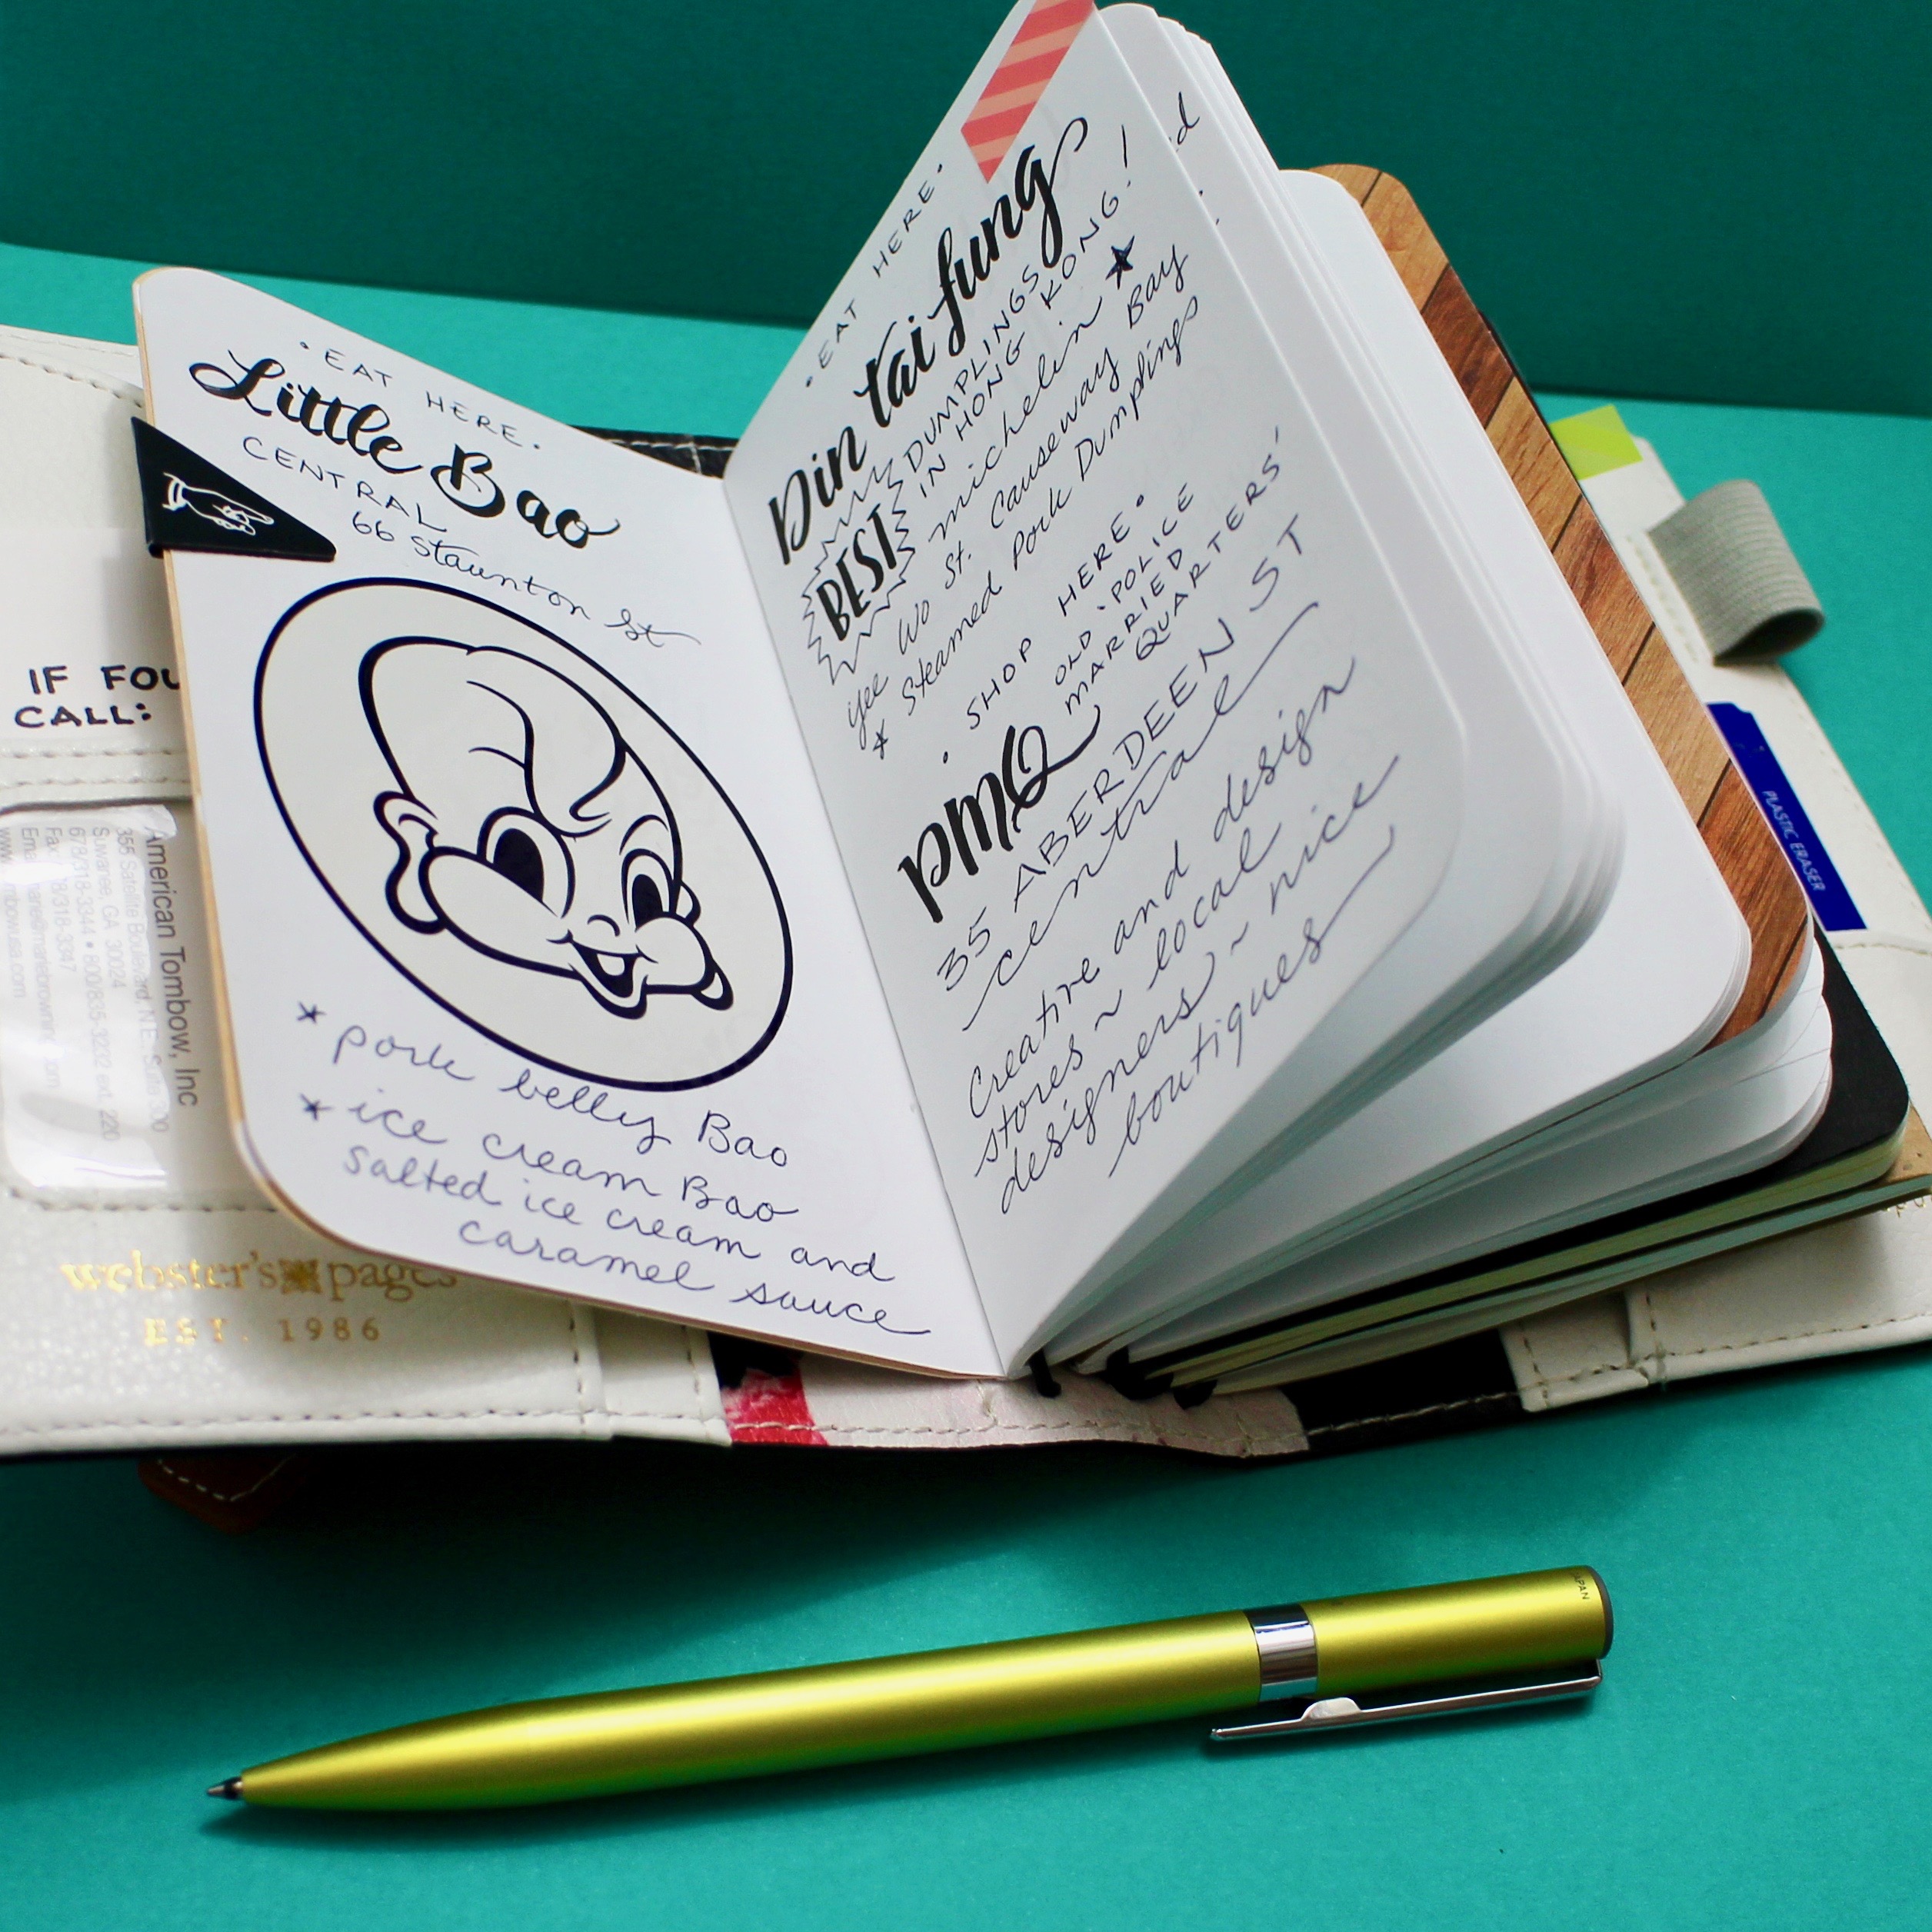 • EAT HERE •
Little Bao
CENTRAL
66 Staunton St
* pork belly Bao
* ice cream Bao
salted ice cream and
caramel sauce
• EAT HERE •
Din tai fung
BEST DUMPLINGS
IN HONG KONG!
michelin ★
Yee Wo St. Causeway Bay
* Steamed Pork Dumplings
• SHOP HERE •
PMQ
OLD 'POLICE
MARRIED
QUARTERS'
35 ABERDEEN ST
central
Creative and design
stores ~ local
designers ~ nice
boutiques
IF FOU
CALL:
American Tombow, Inc
355 Satellite Boulevard, N.E., Suite 300
Suwanee, GA 30024
678/318-3344 • 800/835-3232 ext. 220
webster's pages
EST. 1986
PLASTIC ERASER